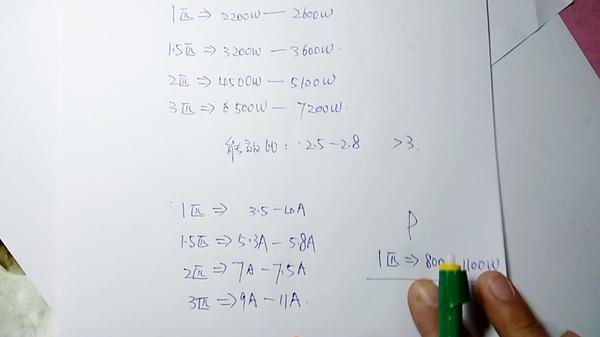 1匹⇒2200W—2600W
1.5匹⇒3200W—3600W.
2匹⇒4500W—5100W
3匹⇒6500W—7200W.
能效比:2.5—2.8 >3.
1匹⇒3.5—4A
1.5匹⇒5.3A—5.8A
2匹⇒7A—7.5A
3匹⇒9A—11A.
P
1匹⇒800 1100W